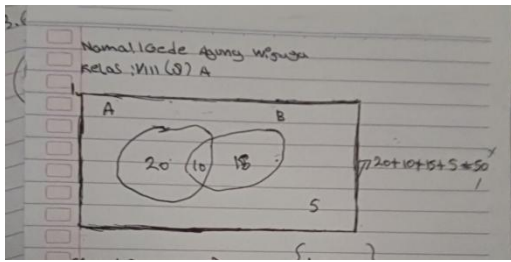 3.6
Nama: I Gede Agung Wijaya
Kelas: VIII (8) A
1.
A
B
20 10 18
20+10+15+5=50
5